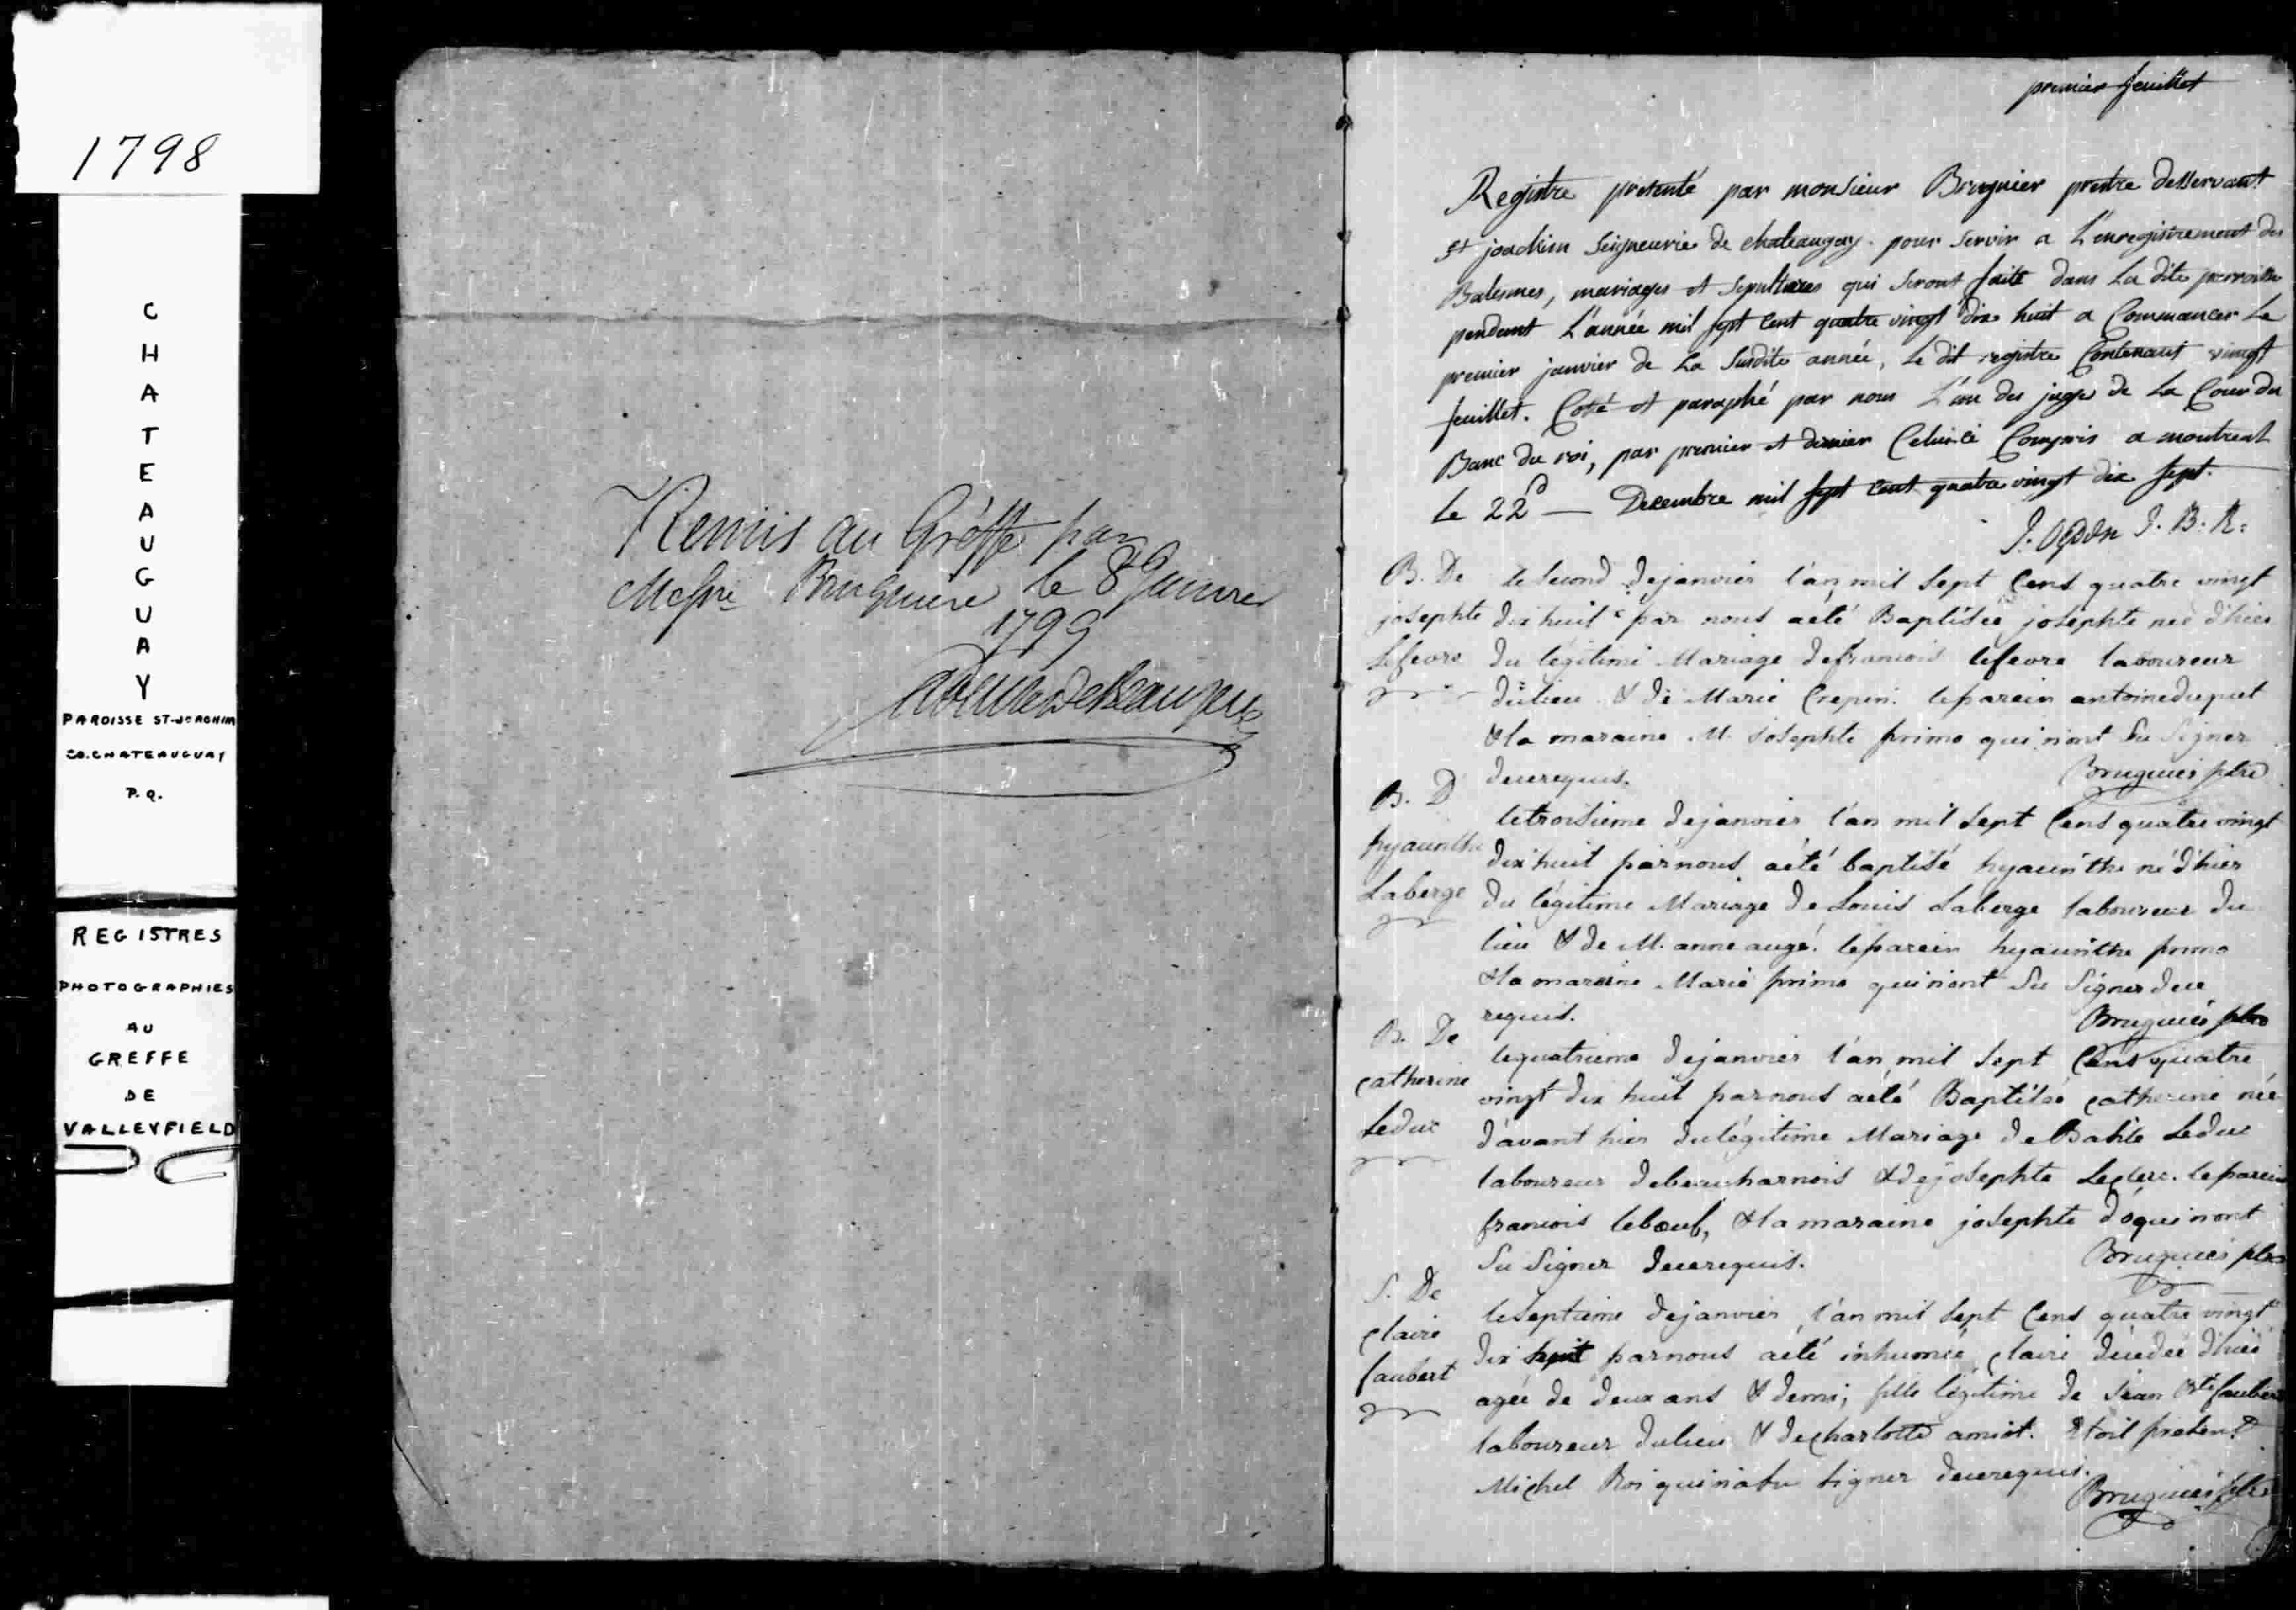 1798
CHATEAUGUAY
PAROISSE ST-JOACHIM
CO. CHATEAUGUAY
P.Q.
REGISTRES
PHOTOGRAPHIES
AU
GREFFE
DE
VALLEYFIELD
Remis au Gréffe par
Messre Bruguiere le 8 Janvier
1799
premier feuillet
Registre présenté par monsieur Bruguier prestre desservant
St joachim Seigneurie de chateaugay. pour servir a L'enregistrement des
Batesmes, mariages et sepultures qui seront faits dans La dite parroisse
pendant L'année mil sept cent quatre vingt dix huit a Commancer Le
premier janvier de La susdite année, Le dit registre Contenant vingt
feuillet. Coté et paraphé par nous L'un des juges de La Cour du
Banc du roi, par premier et dernier Celui-ci Compris a montreal
le 22d — Decembre mil sept cent quatre vingt dix sept.
I. Ogden J. B. R.
B. De
josephte
Lefevre
le second de janvier l'an mil sept Cens quatre vingt
dix huit par nous a eté Baptisée josephte neé d'hier
du légitime Mariage de francois lefevre laboureur
du lieu & de Marie Crepin. le parein antoine duquet
& la maraine M. Josephte primo qui n'ont su signer
de ce requis.
Bruguier ptre
B. D
hyacinthe
Laberge
le troisieme de janvier l'an mil sept Cens quatre vingt
dix huit par nous a été baptisé hyacinthe né d'hier
du légitime Mariage de Louis Laberge laboureur du
lieu & de M. anne augé. le parein hyacinthe primo
& la maraine Marie primo qui n'ont su signer de ce
requis.
Bruguier ptre
B. De
catherine
Leduc
le quatrieme de janvier l'an mil sept Cens quatre
vingt dix huit par nous a eté Baptisée catherine née
d'avant hier du légitime Mariage de Batite Leduc
laboureur de beauharnois & de josephte Leclerc. le parein
francois lebœuf, & la maraine josephte qui n'ont
su signer de ce requis.
Bruguier ptre
S. De
claire
faubert
le septieme de janvier l'an mil sept Cens quatre vingt
dix huit par nous a été inhumée claire décédée d'hier
agée de deux ans & demi, fille légitime de Jean Bte faubert
laboureur du lieu & de charlotte amiot. Etoit present
Michel Roi qui n'a su signer de ce requis.
Bruguier ptre